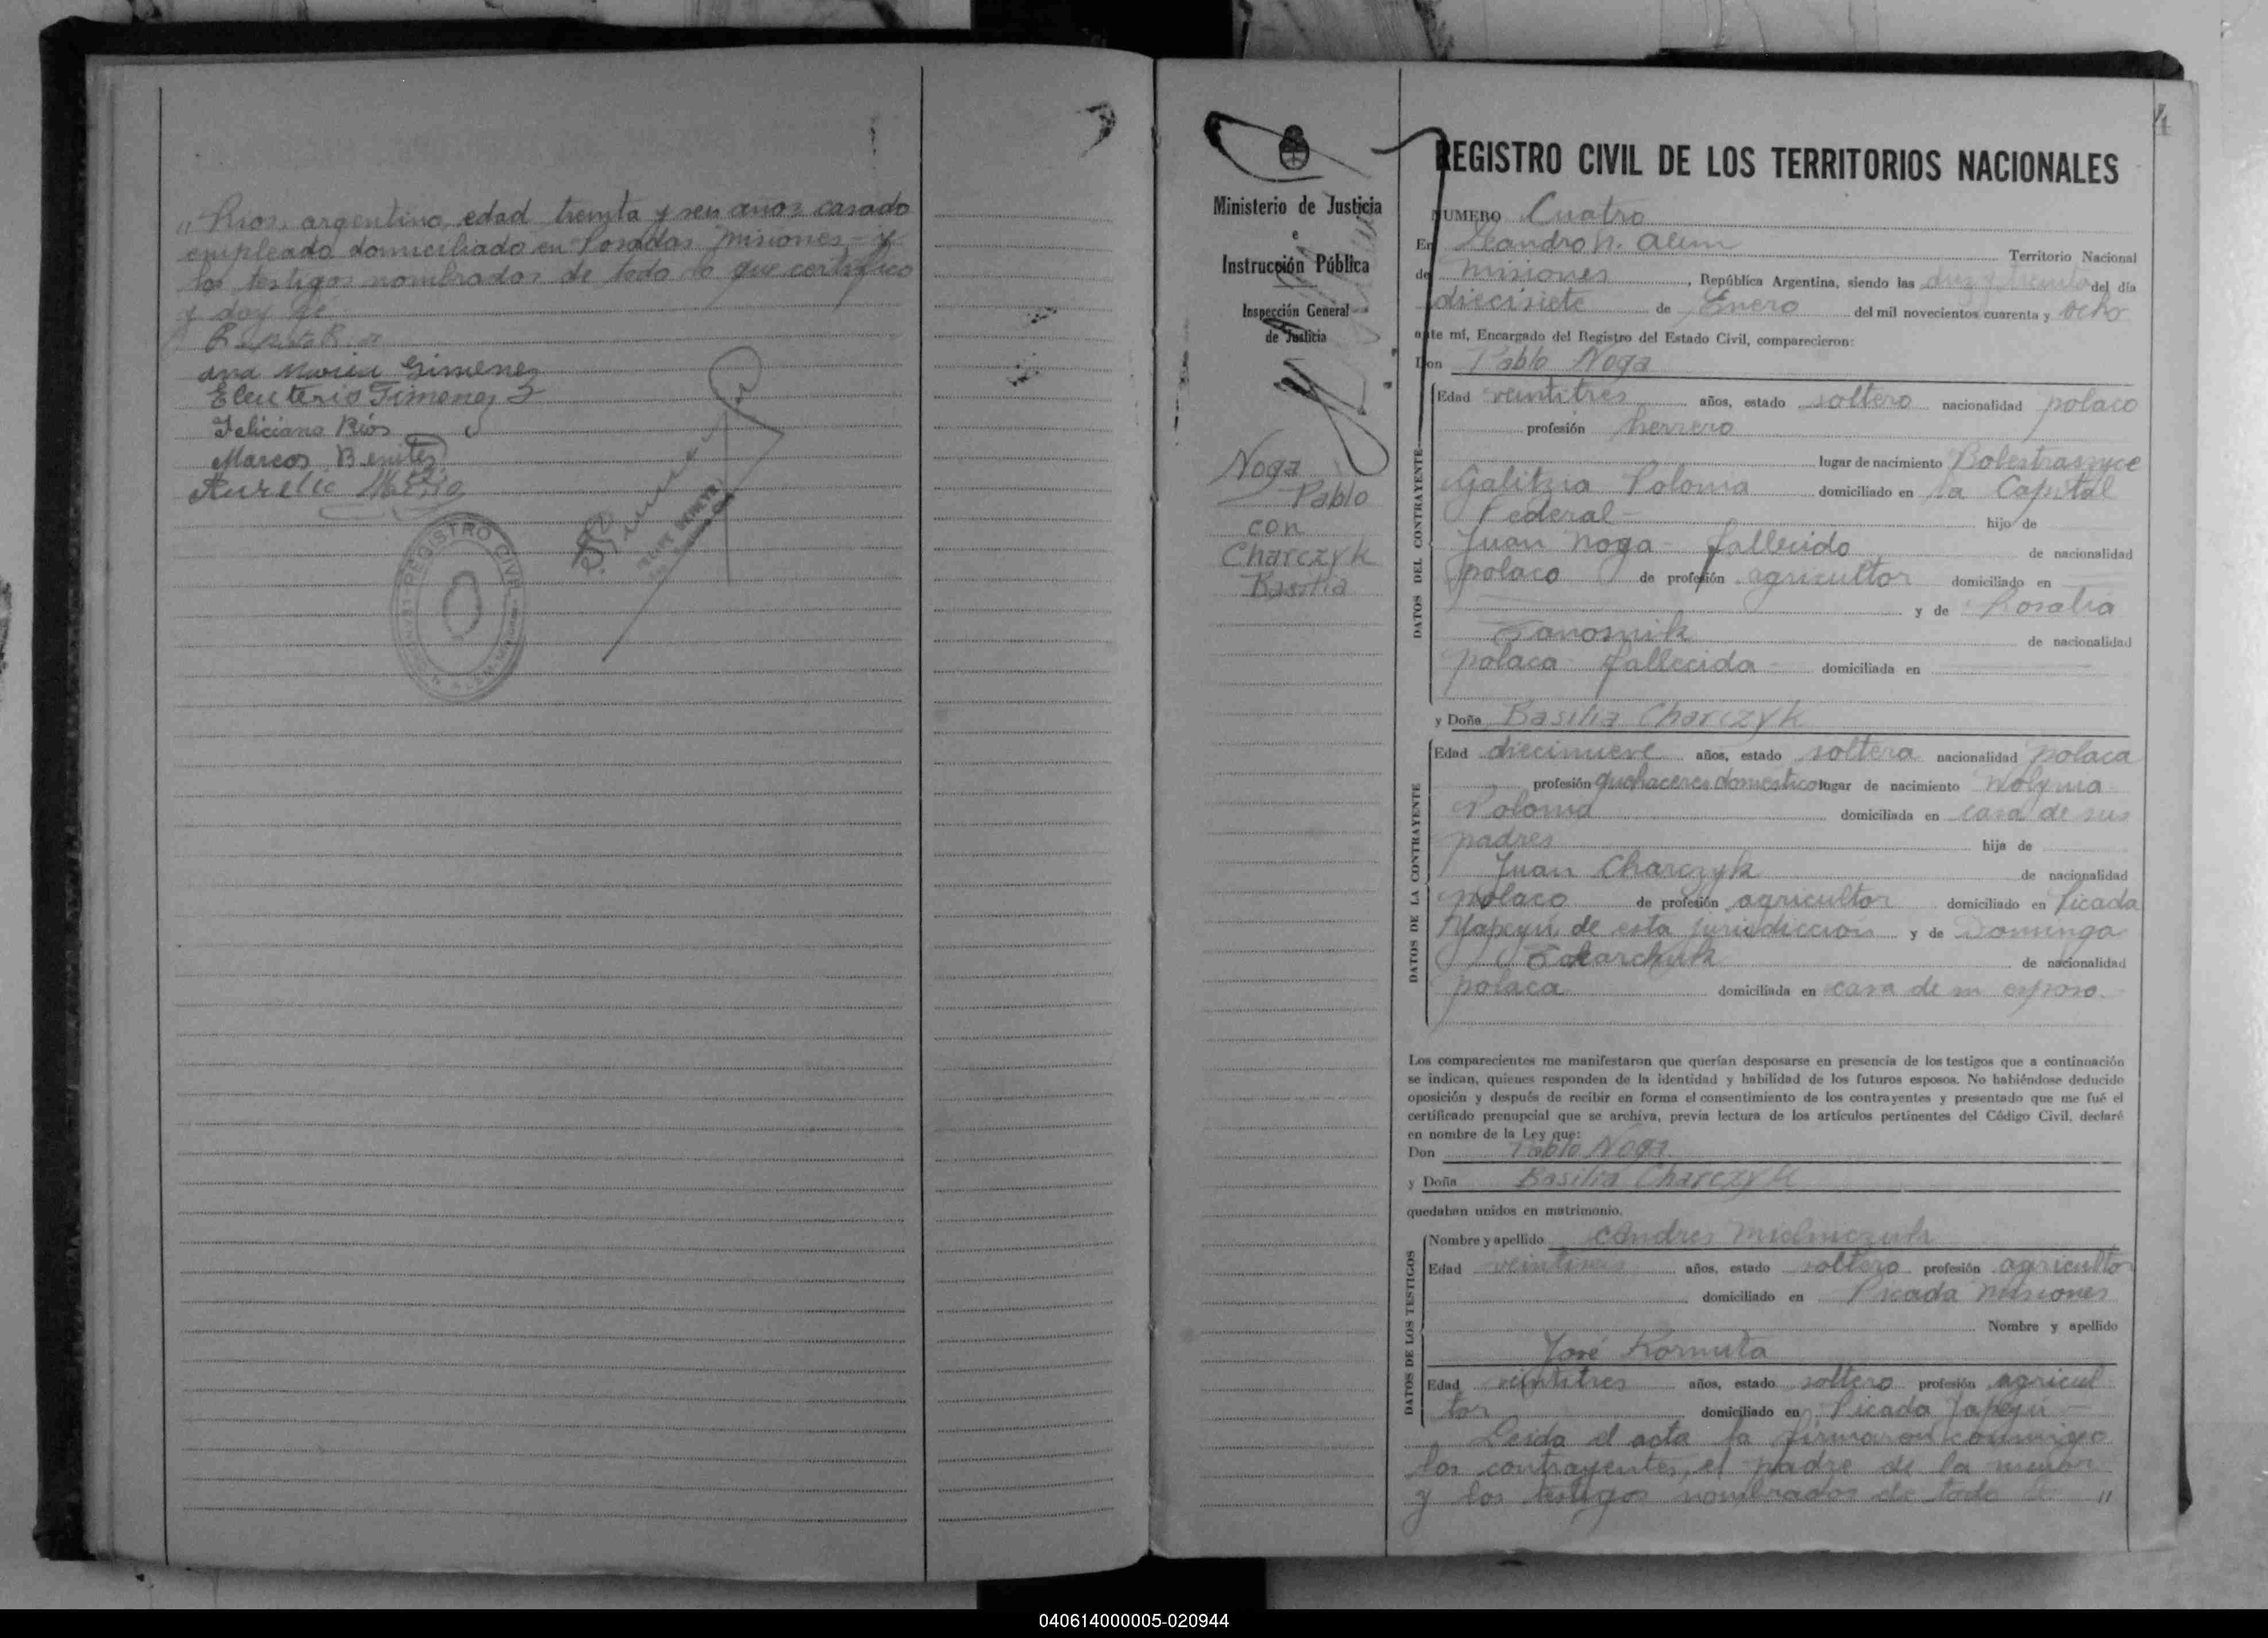 " Rios, argentino, edad treinta y seis años casado
empleado domiciliado en Posadas misiones - y
los testigos nombrados de todo lo que certifico
y doy fe.
Ana Maria Gimenez
Eleuterio Gimenez
Feliciano Ríos
Marcos Benitez
Aurelio
REGISTRO CIVIL
4
Ministerio de Justicia
e
Instrucción Pública
Inspección General
de Justicia
Noga
Pablo
con
Charczyk
Basilia
REGISTRO CIVIL DE LOS TERRITORIOS NACIONALES
NUMERO Cuatro
En Leandro N. Alem Territorio Nacional
de Misiones, República Argentina, siendo las diez y treinta del día
diecisiete de Enero del mil novecientos cuarenta y ocho
ante mí, Encargado del Registro del Estado Civil, comparecieron:
Don Pablo Noga
DATOS DEL CONTRAYENTE
Edad veintitres años, estado soltero nacionalidad polaco
profesión herrero
lugar de nacimiento Bolestraszyce
Galitzia Polonia domiciliado en la Capital
Federal - hijo de
Juan Noga - fallecido de nacionalidad
polaco de profesión agricultor domiciliado en
y de Rosalia
de nacionalidad
polaca fallecida domiciliada en
y Doña Basilia Charczyk
DATOS DE LA CONTRAYENTE
Edad diecinueve años, estado soltera nacionalidad polaca
profesión quehaceres domesticos lugar de nacimiento Wolynia
Polonia domiciliada en casa de sus
padres hija de
Juan Charczyk de nacionalidad
polaco de profesión agricultor domiciliado en Picada
Yapeyú de esta jurisdiccion y de Dominga
de nacionalidad
polaca domiciliada en casa de su esposo.
Los comparecientes me manifestaron que querían desposarse en presencia de los testigos que a continuación
se indican, quienes responden de la identidad y habilidad de los futuros esposos. No habiéndose deducido
oposición y después de recibir en forma el consentimiento de los contrayentes y presentado que me fué el
certificado prenupcial que se archiva, previa lectura de los artículos pertinentes del Código Civil, declaré
en nombre de la Ley que:
Don Pablo Noga
y Doña Basilia Charczyk
quedaban unidos en matrimonio.
DATOS DE LOS TESTIGOS
Nombre y apellido Andres Mielniczuk
Edad años, estado soltero profesión agricultor
domiciliado en Picada Misiones
Nombre y apellido
José Kornuta
Edad veintitres años, estado soltero profesión agricul
tor domiciliado en Picada Yapeyú -
Leida el acta la firmaron conmigo
los contrayentes, el padre de la menor
y los testigos nombrados de todo lo "
040614000005-020944